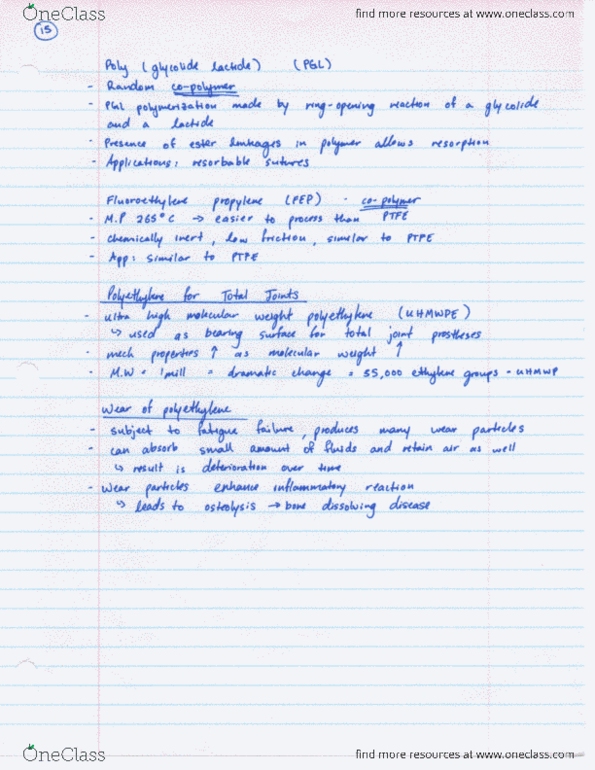 OneClass
find more resources at www.oneclass.com
15
Poly (glycolide lactide) (PGL)
- Random co-polymer
- PGL polymerization made by ring-opening reaction of a glycolide
and a lactide
- Presence of ester linkages in polymer allows resorption
- Applications: resorbable sutures
Fluoroethylene propylene (FEP) - co-polymer
- M.P 265°C → easier to process than PTFE
- chemically inert, low friction, similar to PTFE
- App: similar to PTFE
Polyethylene for Total Joints
- ultra high molecular weight polyethylene (UHMWPE)
↳ used as bearing surface for total joint prostheses
- mech properties ↑ as molecular weight ↑
- M.W = 1mill = dramatic change = 35,000 ethylene groups - UHMWP
Wear of polyethylene
- subject to fatigue failure, produces many wear particles
- can absorb small amount of fluids and retain air as well
↳ result is deterioration over time
- Wear particles enhance inflammatory reaction
↳ leads to osteolysis → bone dissolving disease
OneClass
find more resources at www.oneclass.com